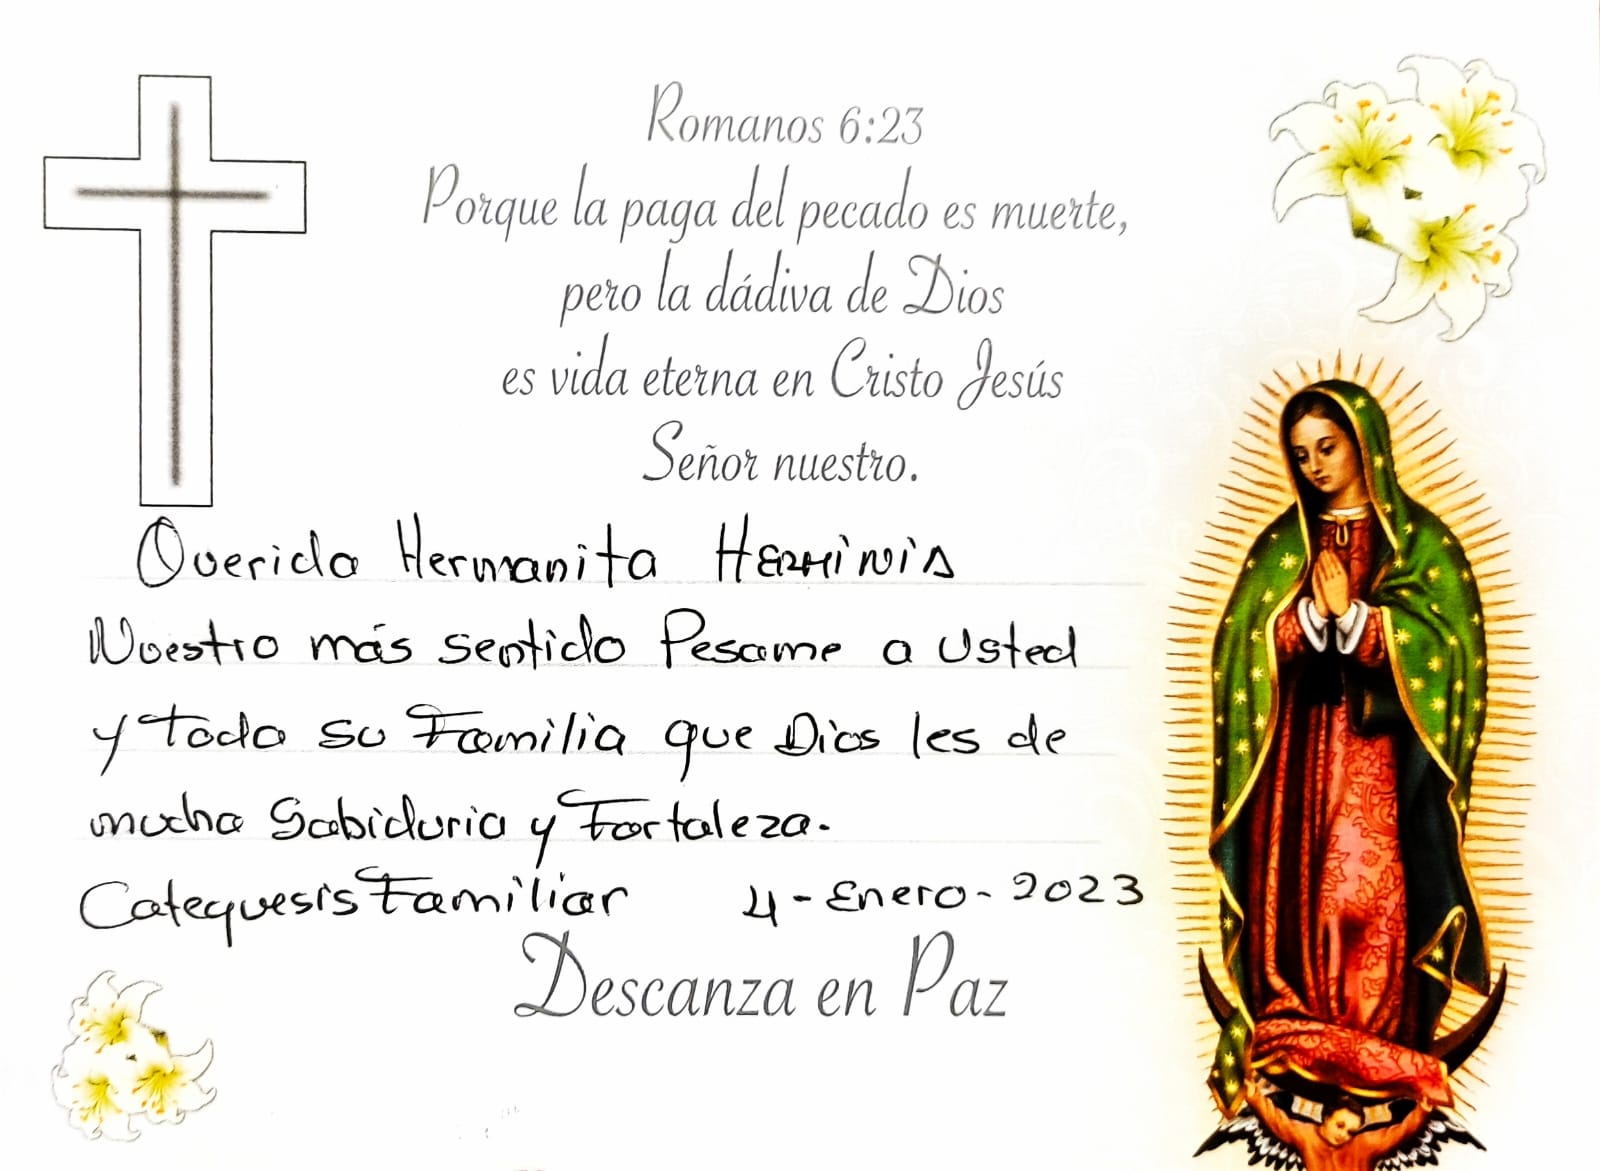 Romanos 6:23
Porque la paga del pecado es muerte,
pero la dádiva de Dios
es vida eterna en Cristo Jesús
Señor nuestro.
Querida Hermanita HERMINIA
Nuestro más sentido Pesame a Usted
y toda su Familia que Dios les de
mucha Sabiduria y Fortaleza.
Catequesis Familiar 4-Enero-2023
Descanza en Paz